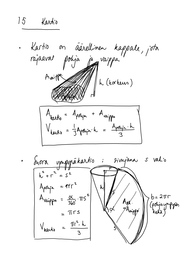 1.5 Kartio
• Kartio on äärellinen kappale, jota
rajaavat pohja ja vaippa.
A vaippa
h (korkeus)
A kartio = A pohja + A vaippa
V kartio = 1/3 A pohja · h = A pohja · h / 3
• Suora ympyräkartio : sivujana s vakio
h² + r² = s²
A pohja = πr²
A vaippa = α/360 · πs²
= πrs
V kartio = πr² · h / 3
b = 2πr